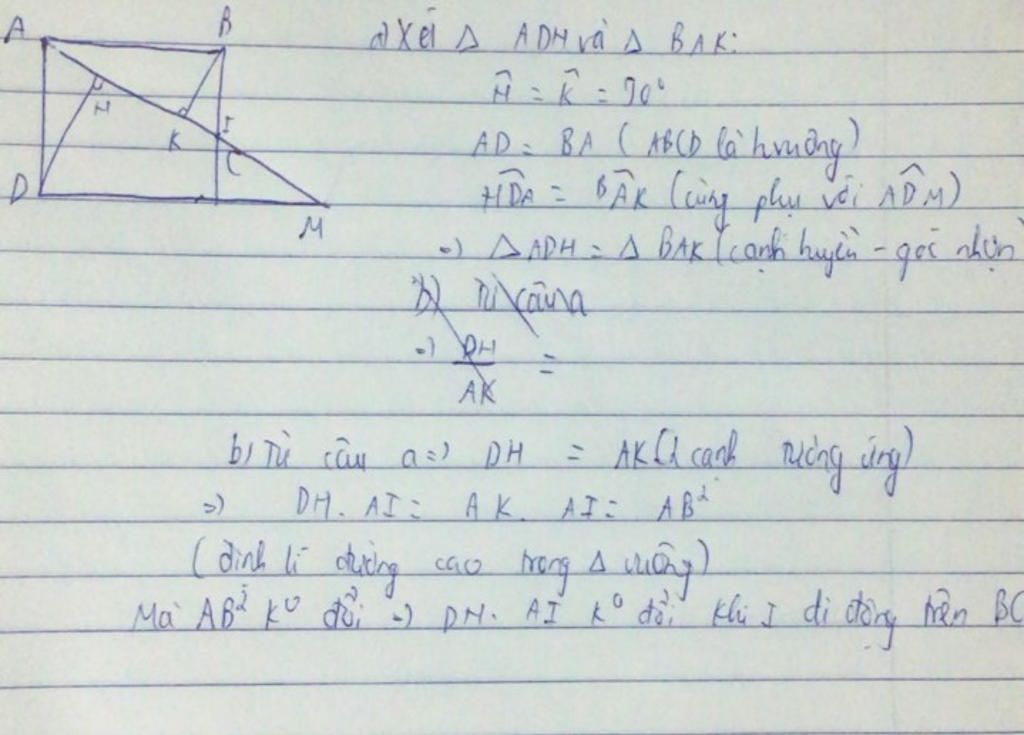 A B
a) Xét Δ ADH và Δ BAK:
Ĥ = K̂ = 90°
H
K I
AD = BA (ABCD là hvuông)
C
D
HD̂A = BÂK (cùng phụ với AD̂M)
M
=) Δ ADH = Δ BAK (cạnh huyền - góc nhọn
b) Từ câu a
=) DH/AK =
b) Từ câu a =) DH = AK (2 cạnh tương ứng)
=) DH. AI = AK. AI = AB²
(định lí đường cao trong Δ vuông)
Mà AB² K° đổi =) DH. AI K° đổi khi I di động trên BC